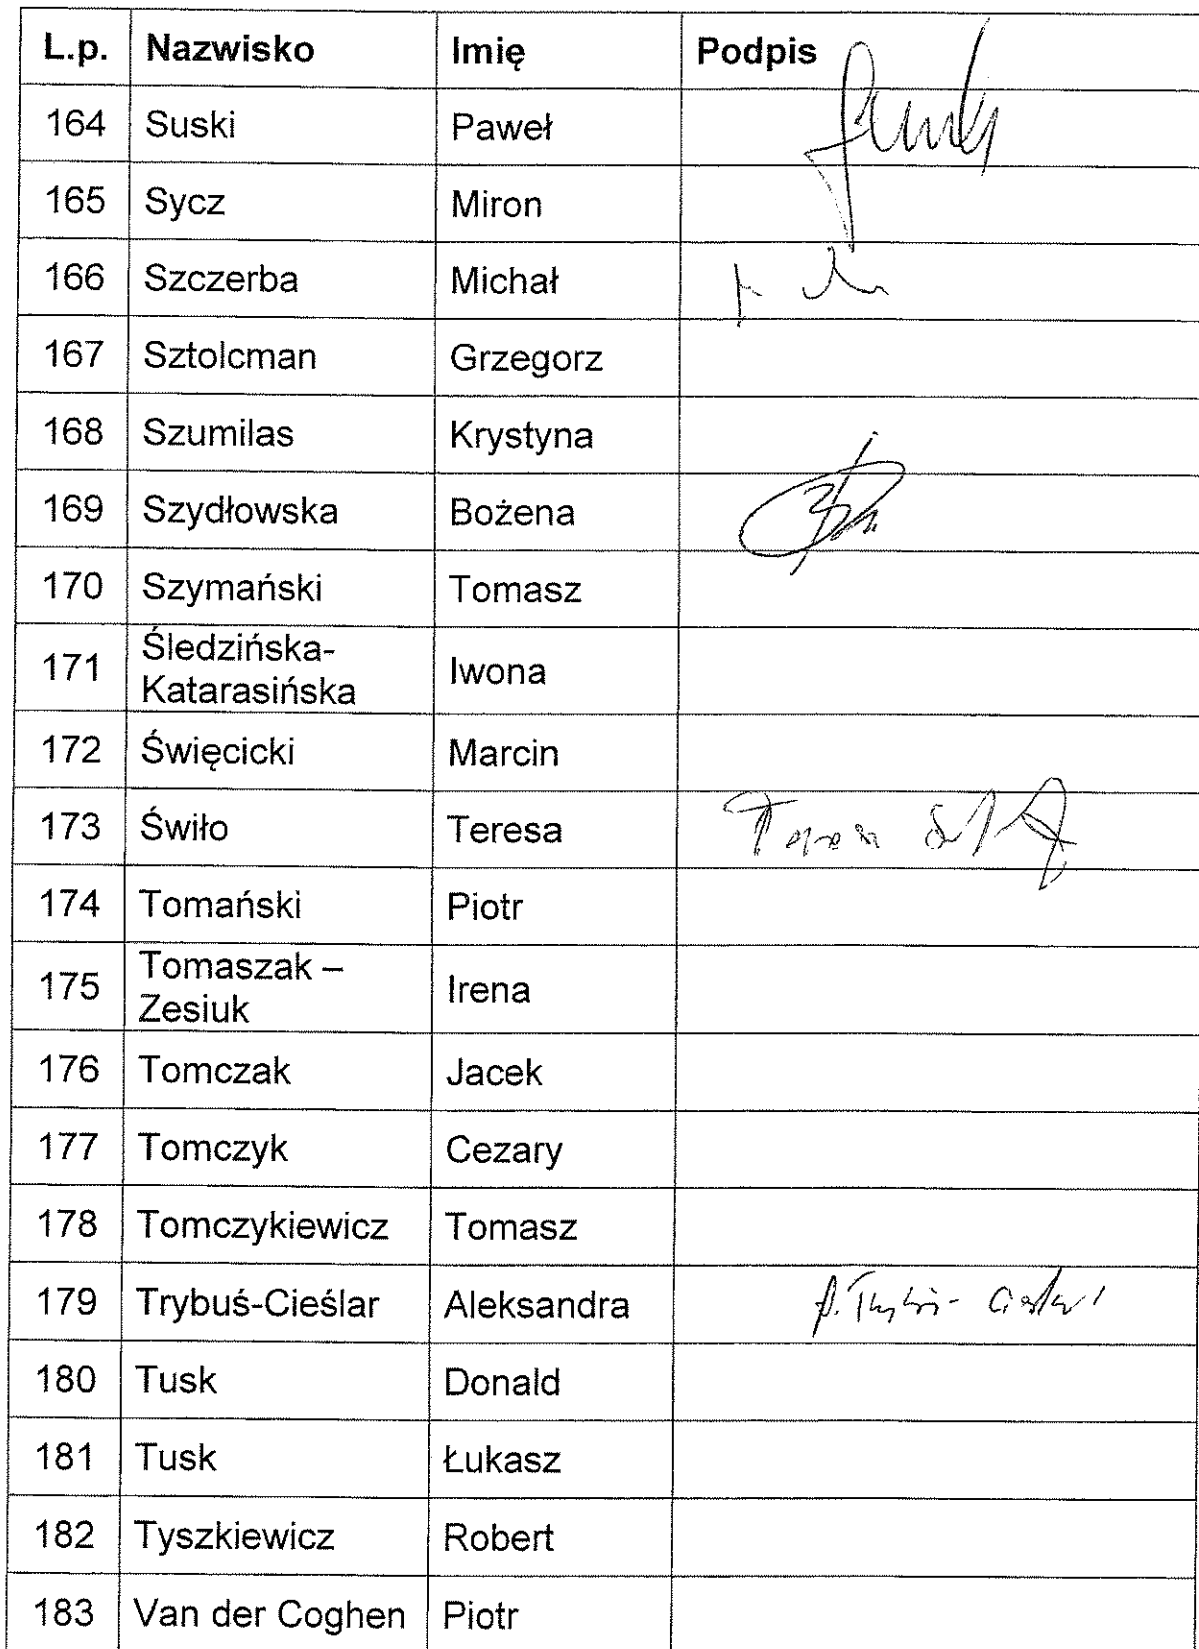 L.p. Nazwisko Imię Podpis
164 Suski Paweł
165 Sycz Miron
166 Szczerba Michał
167 Sztolcman Grzegorz
168 Szumilas Krystyna
169 Szydłowska Bożena
170 Szymański Tomasz
171 Śledzińska-
Katarasińska Iwona
172 Święcicki Marcin
173 Świło Teresa Teresa
174 Tomański Piotr
175 Tomaszak –
Zesiuk Irena
176 Tomczak Jacek
177 Tomczyk Cezary
178 Tomczykiewicz Tomasz
179 Trybuś-Cieślar Aleksandra A. Trybuś-Cieślar
180 Tusk Donald
181 Tusk Łukasz
182 Tyszkiewicz Robert
183 Van der Coghen Piotr